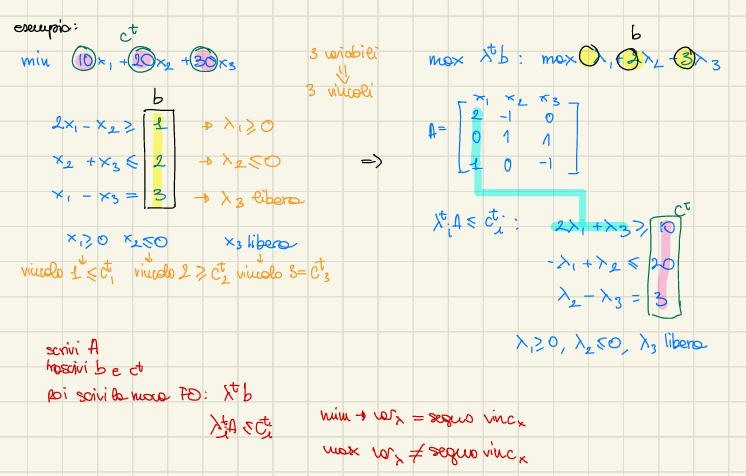 esempio:
c^t
min 10x₁ + 20x₂ + 30x₃
3 variabili
⇓
3 vincoli
b
2x₁ - x₂ ≥ 1 → λ₁ ≥ 0
x₂ + x₃ ≤ 2 → λ₂ ≤ 0
x₁ - x₃ = 3 → λ₃ libera
x₁ ≥ 0 x₂ ≤ 0 x₃ libera
↓ ↓ ↓
vincolo 1 ≤ c^t₁ vincolo 2 ≥ c^t₂ vincolo 3 = c^t₃
⇒
b
max λ^t b : max λ₁ + 2λ₂ - 3λ₃
x₁ x₂ x₃
A = 2 -1 0
0 1 1
1 0 -1
c^t
λ^t_i A ≤ c^t_i : 2λ₁ + λ₃ ≥ 10
-λ₁ + λ₂ ≤ 20
λ₂ - λ₃ = 3
λ₁ ≥ 0, λ₂ ≤ 0, λ₃ libera
scrivi A
trascrivi b e c^t
poi scrivi la nuova FO: λ^t b
λ^t_i A ≤ c^t_i
min → var_λ = segno vinc_x
max var_λ ≠ segno vinc_x